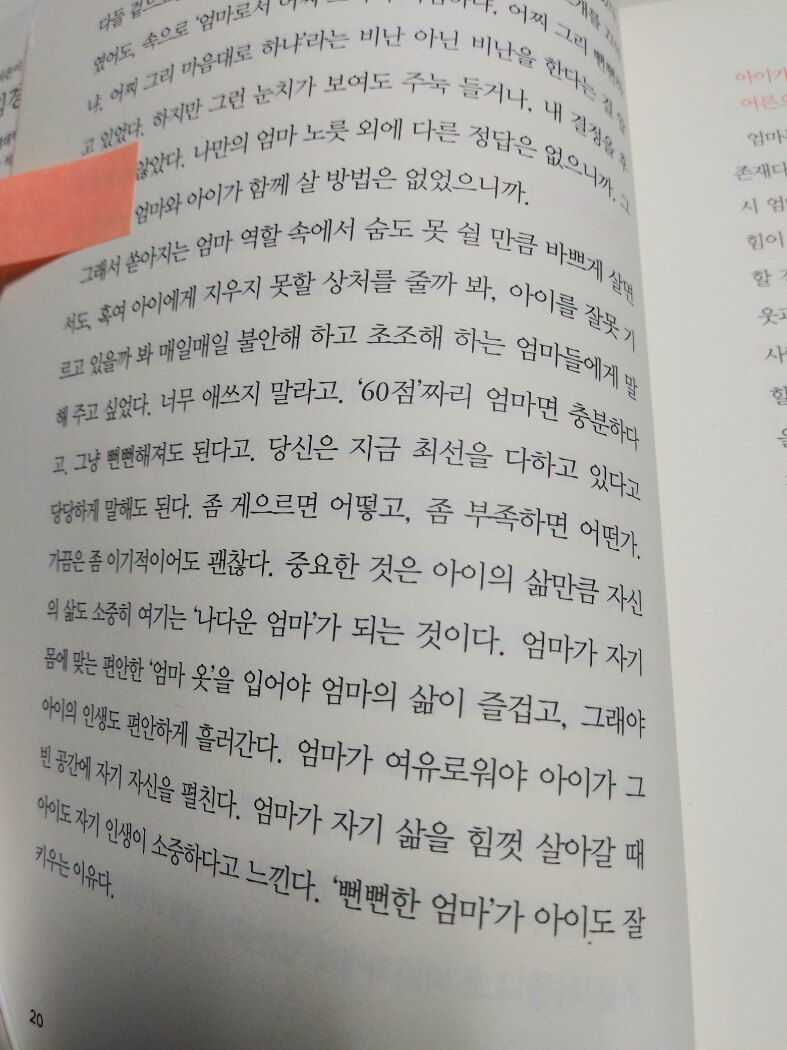 다들
였어도, 속으로 '엄마로서 어찌
냐, 어찌 그리 마음대로 하냐'라는 비난 아닌 비난을 한다는 걸 알
고 있었다. 하지만 그런 눈치가 보여도 주눅 들거나, 내 결정을 후
않았다. 나만의 엄마 노릇 외에 다른 정답은 없으니까. 그
엄마와 아이가 함께 살 방법은 없었으니까.
그래서 쏟아지는 엄마 역할 속에서 숨도 못 쉴 만큼 바쁘게 살면
서도, 혹여 아이에게 지우지 못할 상처를 줄까 봐, 아이를 잘못 기
르고 있을까 봐 매일매일 불안해 하고 초조해 하는 엄마들에게 말
해 주고 싶었다. 너무 애쓰지 말라고. '60점'짜리 엄마면 충분하다
고. 그냥 뻔뻔해져도 된다고. 당신은 지금 최선을 다하고 있다고
당당하게 말해도 된다. 좀 게으르면 어떻고, 좀 부족하면 어떤가.
가끔은 좀 이기적이어도 괜찮다. 중요한 것은 아이의 삶만큼 자신
의 삶도 소중히 여기는 '나다운 엄마'가 되는 것이다. 엄마가 자기
몸에 맞는 편안한 '엄마 옷'을 입어야 엄마의 삶이 즐겁고, 그래야
아이의 인생도 편안하게 흘러간다. 엄마가 여유로워야 아이가 그
빈 공간에 자기 자신을 펼친다. 엄마가 자기 삶을 힘껏 살아갈 때
아이도 자기 인생이 소중하다고 느낀다. '뻔뻔한 엄마'가 아이도 잘
키우는 이유다.
20
아이가
어른으
엄마
존재다
시 엄
힘이
할
웃고
사
할
을